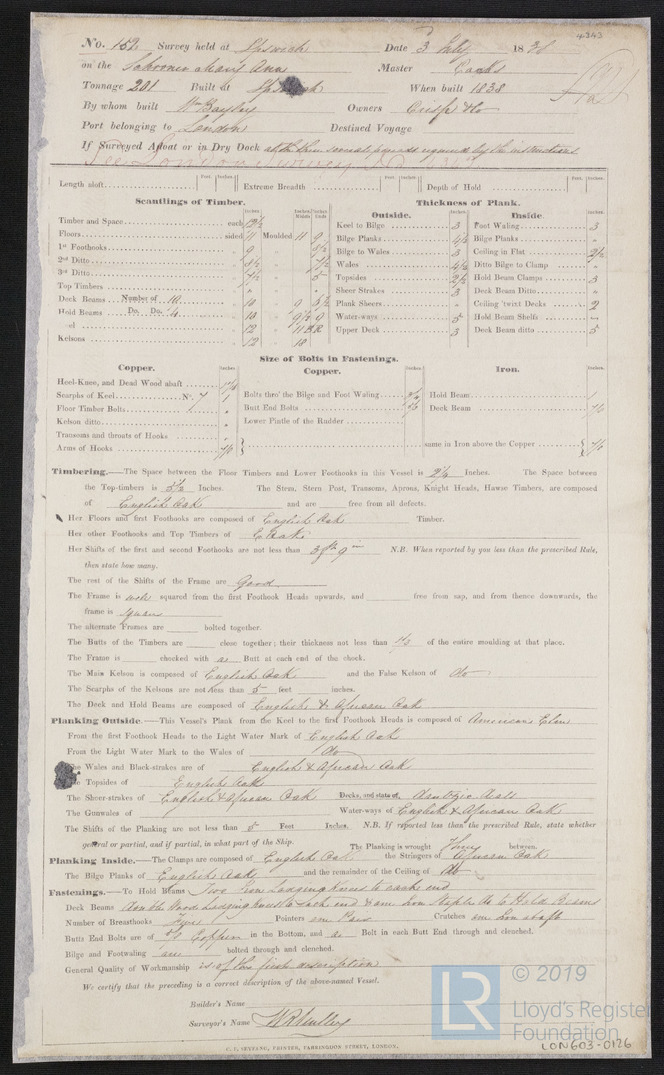 4343
No. 152 Survey held at Ipswich Date 3 July 1838
on the Schooner Mary Ann Master
Tonnage 201 Built at Ipswich When built 1838
By whom built Wm Bayley Owners Crisp & Co
Port belonging to London Destined Voyage
If Surveyed Afloat or in Dry Dock at the three several periods required by the instructions
See London Survey
Length aloft Feet. Inches. Extreme Breadth Feet. Inches. Depth of Hold Feet. Inches.
Scantlings of Timber. Thickness of Plank.
Outside. Inside.
Timber and Space each 12½ Keel to Bilge 3 Foot Waling 3
Floors sided 11 Moulded 11 9 Bilge Planks 4½ Bilge Planks "
1st Foothooks 9 " 8½ Bilge to Wales 3 Ceiling in Flat 2½
2nd Ditto 8½ " 7½ Wales 4½ Ditto Bilge to Clamp "
3rd Ditto 7½ " 5 Topsides 2½ Hold Beam Clamps 3
Top Timbers " Sheer Strakes 3 Deck Beam Ditto "
Deck Beams Number of 10 10 9 6½ Plank Sheers " Ceiling 'twixt Decks 2
Hold Beams Do. Do. 4 10 9½ 9 Water-ways 5 Hold Beam Shelfs
el 12 " 11 Upper Deck 3 Deck Beam ditto 5
Kelsons 12 18
Size of Bolts in Fastenings.
Copper. Copper. Iron.
Heel-Knee, and Dead Wood abaft 1⅛ Bolts thro' the Bilge and Foot Waling Hold Beam 1
Scarphs of Keel No. 7 1 Butt End Bolts Deck Beam 7/8
Floor Timber Bolts " Lower Pintle of the Rudder
Kelson ditto "
Transoms and throats of Hooks "
Arms of Hooks 7/8 same in Iron above the Copper 7/8
Timbering.—The Space between the Floor Timbers and Lower Foothooks in this Vessel is 2¼ Inches. The Space between
the Top-timbers is 5½ Inches. The Stem, Stern Post, Transoms, Aprons, Knight Heads, Hawse Timbers, are composed
of English Oak and are free from all defects.
Her Floors and first Foothooks are composed of English Oak Timber.
Her other Foothooks and Top Timbers of E Oak
Her Shifts of the first and second Foothooks are not less than 3 ft 9 in N.B. When reported by you less than the prescribed Rule,
then state how many.
The rest of the Shifts of the Frame are Good
The Frame is well squared from the first Foothook Heads upwards, and free from sap, and from thence downwards, the
frame is square
The alternate Frames are bolted together.
The Butts of the Timbers are close together; their thickness not less than 1/3 of the entire moulding at that place.
The Frame is checked with as Butt at each end of the chock.
The Main Kelson is composed of English Oak and the False Kelson of do
The Scarphs of the Kelsons are not less than 5 feet inches.
The Deck and Hold Beams are composed of English & African Oak
Planking Outside.—This Vessel's Plank from the Keel to the first Foothook Heads is composed of American Elm
From the first Foothook Heads to the Light Water Mark of English Oak
From the Light Water Mark to the Wales of do
The Wales and Black-strakes are of English & African Oak
The Topsides of English Oak
The Sheer-strakes of English & African Oak Decks, and state of, Dantzic Deals
The Gunwales of Water-ways of English & African Oak
The Shifts of the Planking are not less than 5 Feet Inches. N.B. If reported less than the prescribed Rule, state whether
general or partial, and if partial, in what part of the Ship. The Planking is wrought Three between.
Planking Inside.—The Clamps are composed of English Oak the Stringers of African Oak
The Bilge Planks of English Oak and the remainder of the Ceiling of do
Fastenings.—To Hold Beams Two Iron Lodging knees to each end
Deck Beams double Wood Lodging knees to each end & one Iron Staple do to Hold Beams
Number of Breasthooks Five Pointers one Pair Crutches one Iron abaft
Butts End Bolts are of Copper in the Bottom, and as Bolt in each Butt End through and clenched.
Bilge and Footwaling are bolted through and clenched.
General Quality of Workmanship is of the first description
We certify that the preceding is a correct description of the above-named Vessel.
Builder's Name
Surveyor's Name
C. F. SEYFANG, PRINTER, FARRINGDON STREET, LONDON.
LR © 2019
Lloyd's Register
Foundation
LON603-0126